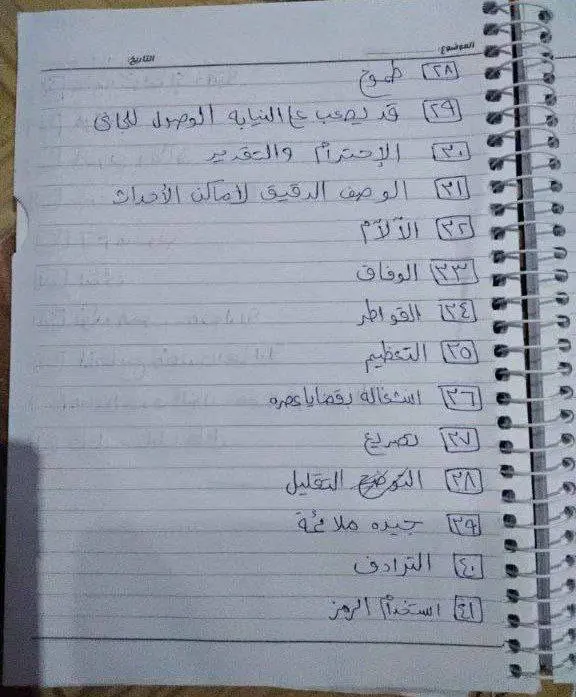 الموضوع: التاريخ:
٢٨ طموح
٢٩ قد يصعب على النيابة الوصول للجانى
٣٠ الإحترام والتقدير
٣١ الوصف الدقيق لأماكن الأحداث
٣٢ الآلآم
٣٣ الوفاق
٣٤ القواطر
٣٥ التعظيم
٣٦ اشغاله بقضايا عصره
٣٧ تصريع
٣٨ التقليل
٣٩ جيده ملائمة
٤٠ الترادف
٤١ استخدام الرمز